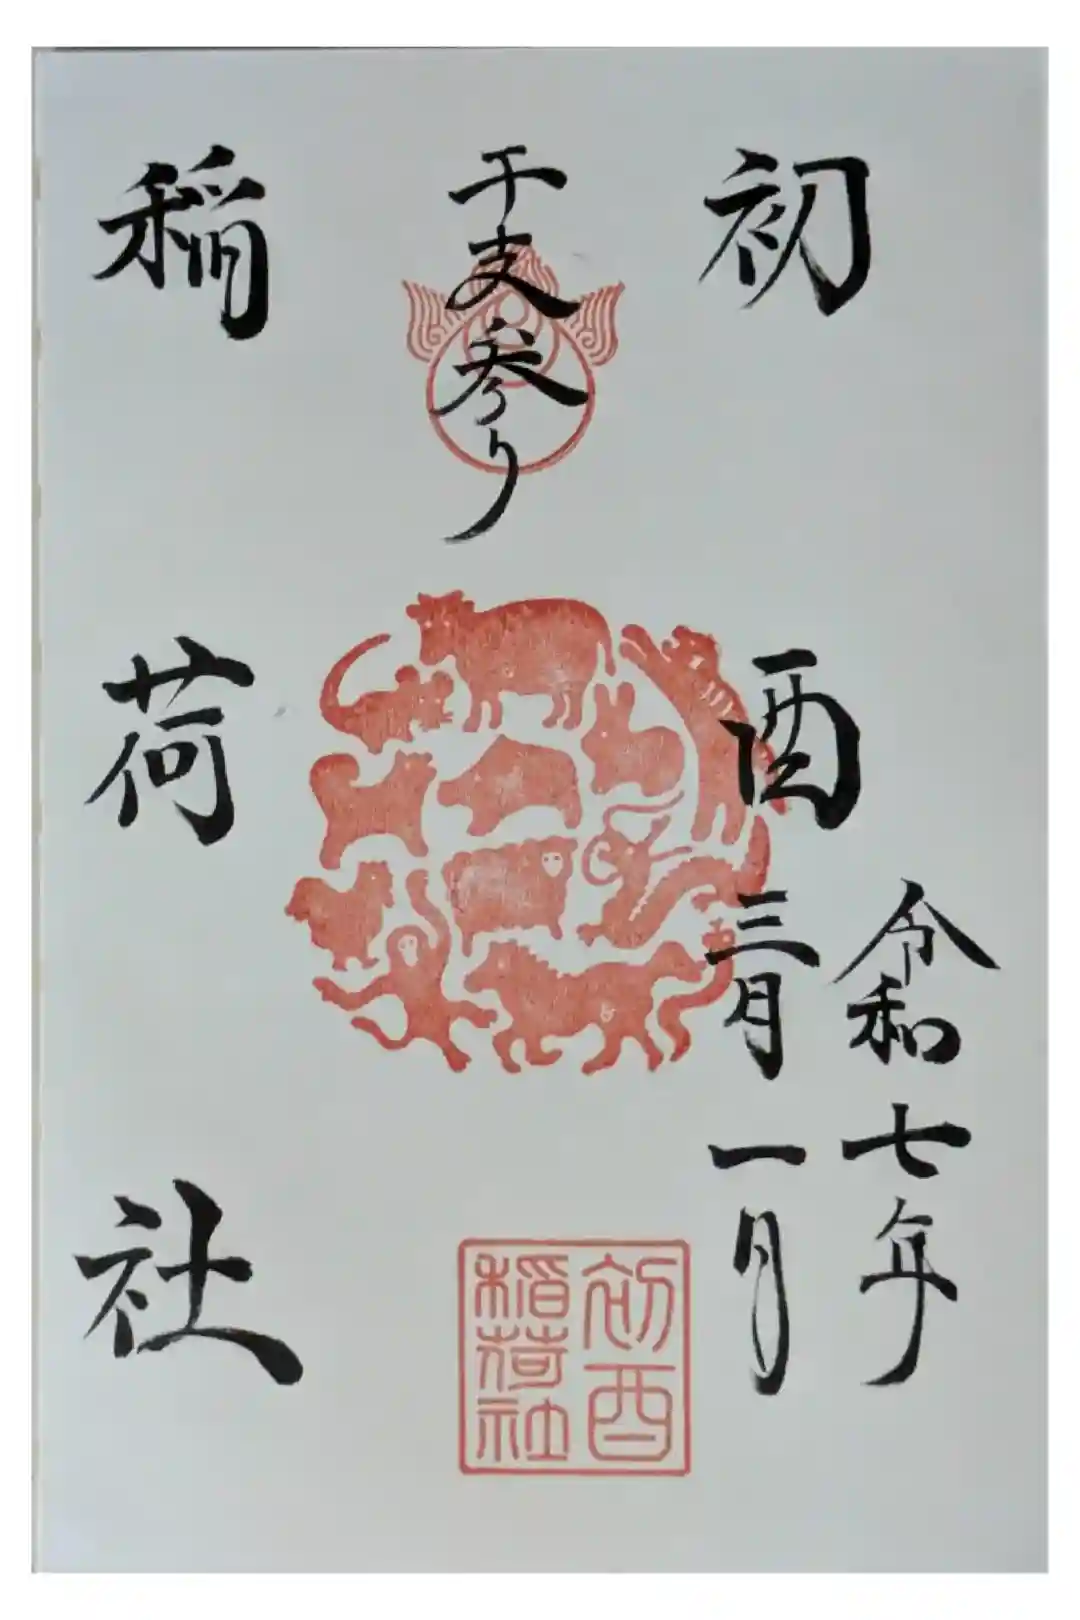 令和七年
初酉
三月一日
干支参り
稲荷社
初酉
稲荷社